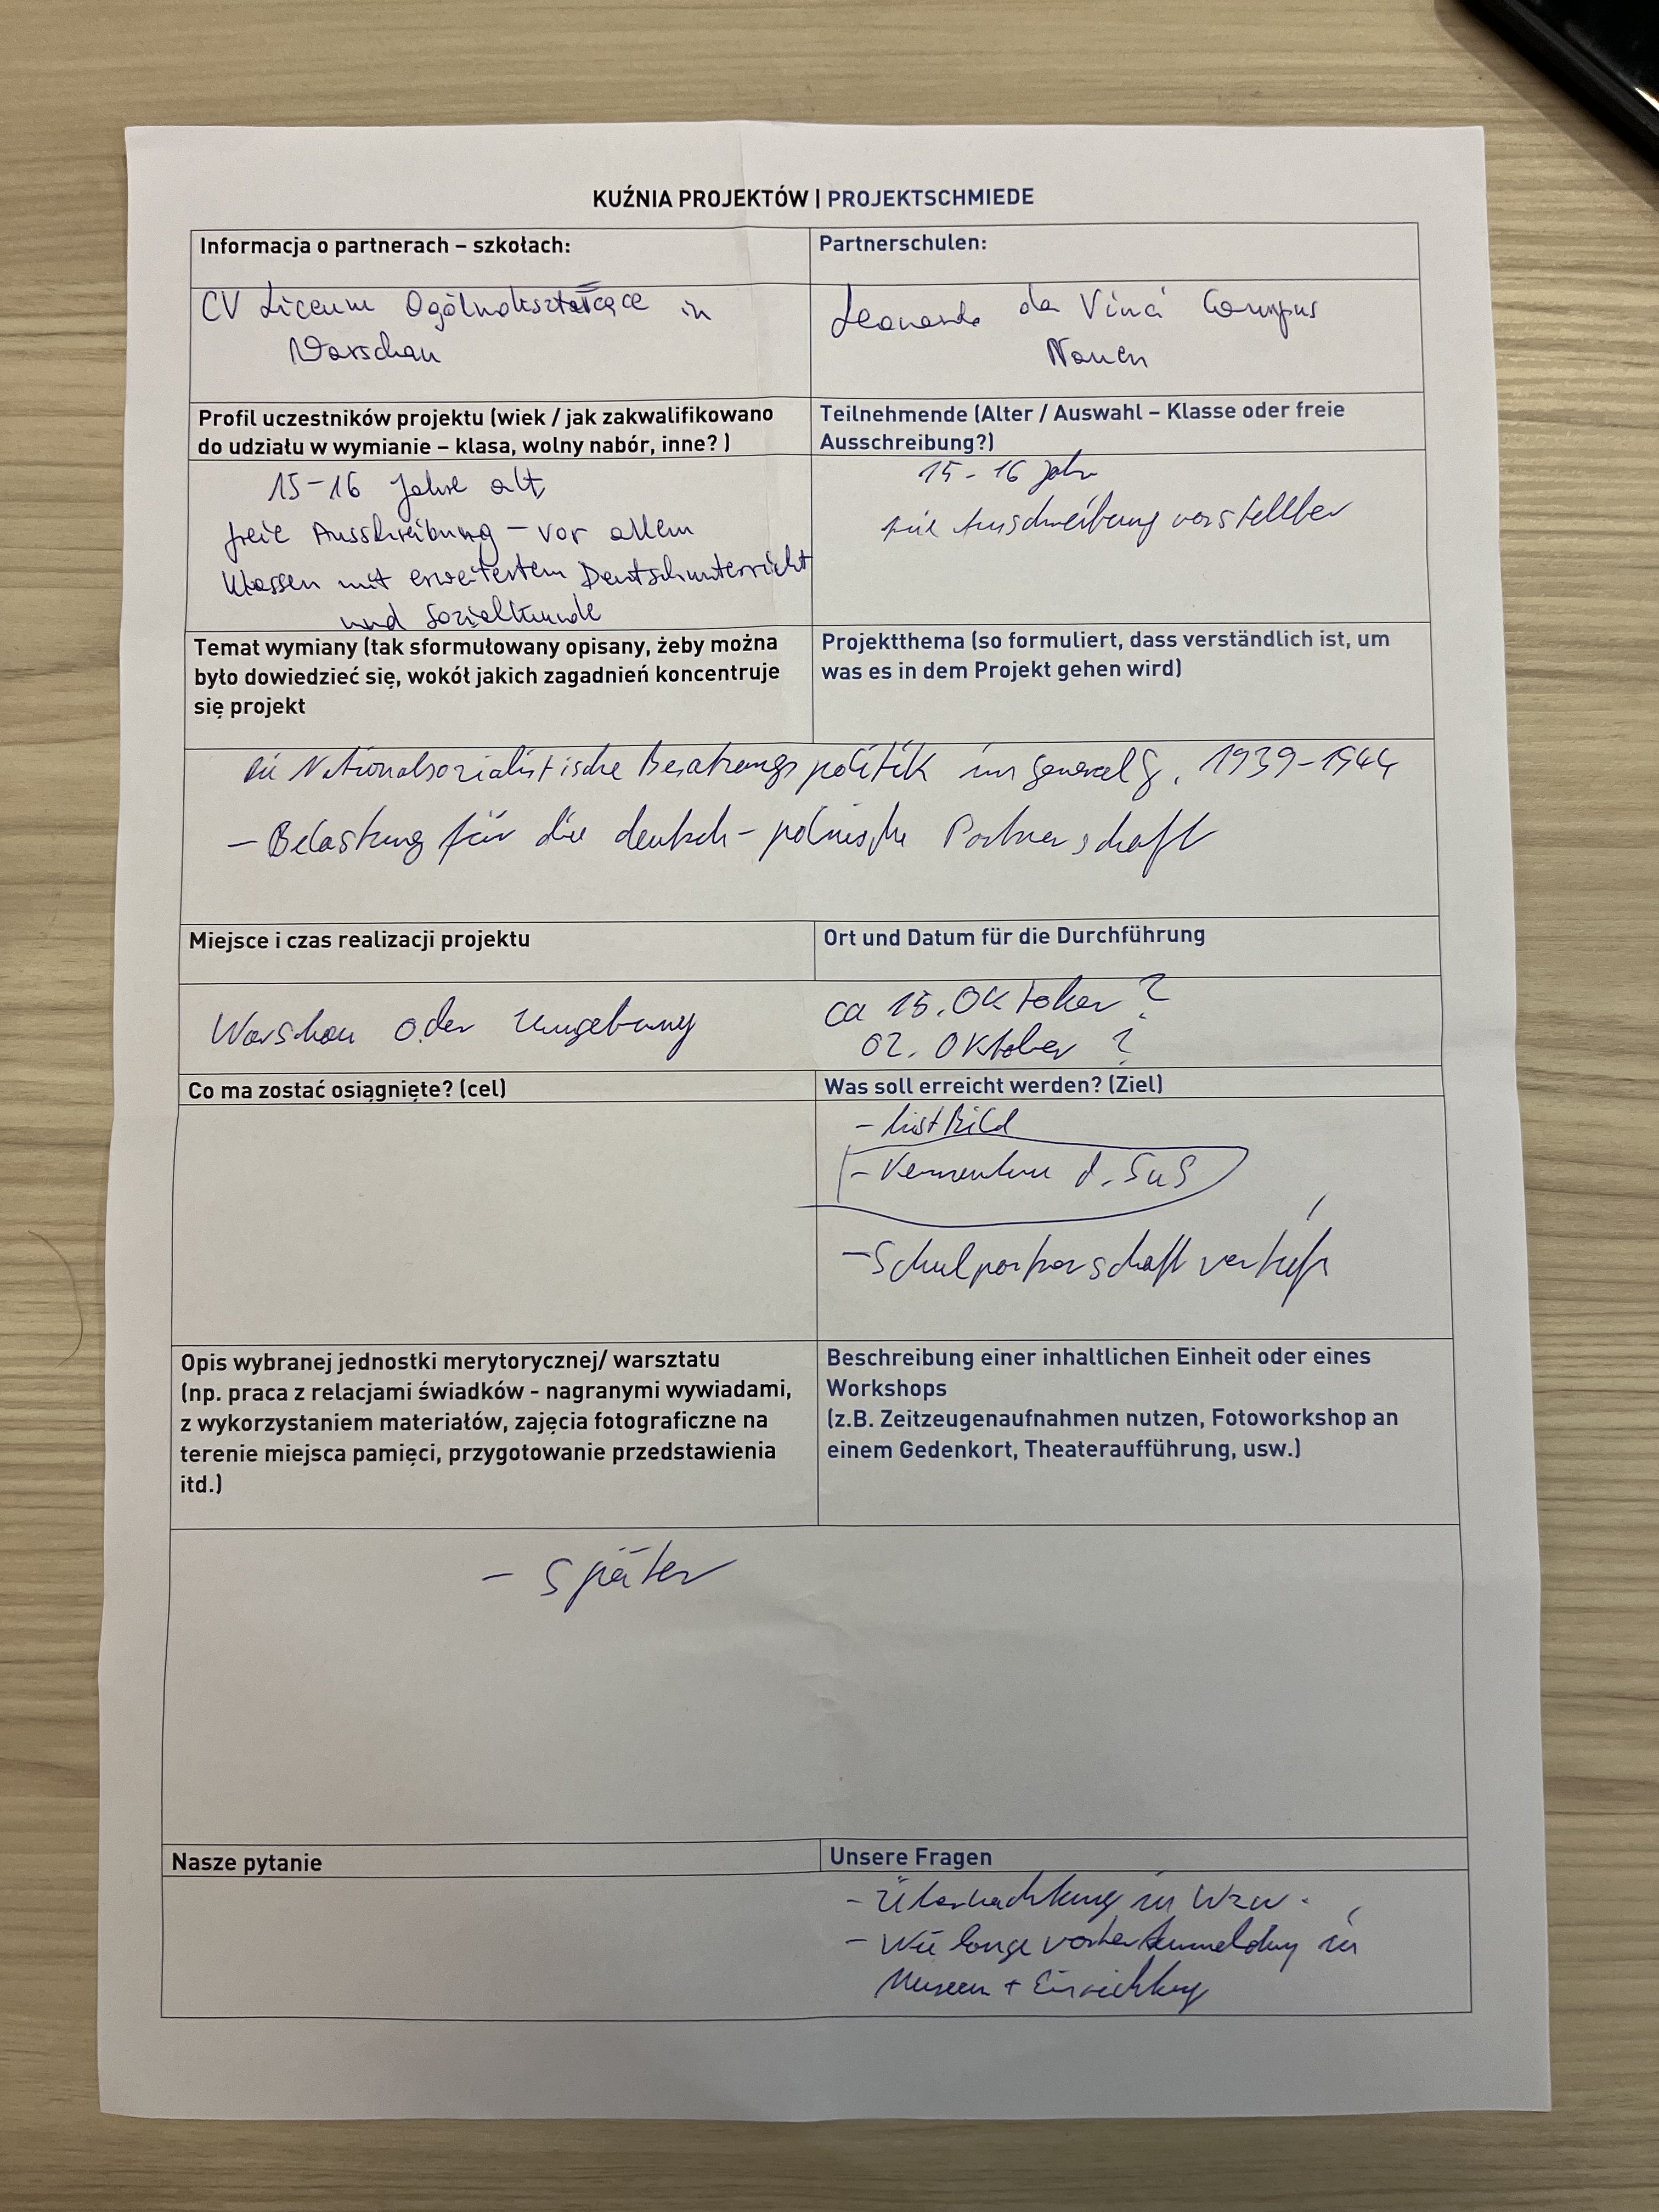 KUŹNIA PROJEKTÓW | PROJEKTSCHMIEDE
Informacja o partnerach – szkołach:
Partnerschulen:
CV Liceum Ogólnokształcące in
Warschau
Leonardo da Vinci Campus
Nauen
Profil uczestników projektu (wiek / jak zakwalifikowano
do udziału w wymianie – klasa, wolny nabór, inne? )
Teilnehmende (Alter / Auswahl – Klasse oder freie
Ausschreibung?)
15-16 Jahre alt,
freie Ausschreibung – vor allem
Klassen mit erweitertem Deutschunterricht
und Sozialkunde
15-16 Jahr
Ausschreibung vorstellbar
Temat wymiany (tak sformułowany opisany, żeby można
było dowiedzieć się, wokół jakich zagadnień koncentruje
się projekt
Projektthema (so formuliert, dass verständlich ist, um
was es in dem Projekt gehen wird)
Die Nationalsozialistische Besatzungspolitik im Generalg. 1939-1944
– Belastung für die deutsch-polnische Partnerschaft
Miejsce i czas realizacji projektu
Ort und Datum für die Durchführung
Warschau oder Umgebung
ca 15. Oktober ?
02. Oktober ?
Co ma zostać osiągnięte? (cel)
Was soll erreicht werden? (Ziel)
–
– d. SuS
– Schulpartnerschaft
Opis wybranej jednostki merytorycznej/ warsztatu
(np. praca z relacjami świadków - nagranymi wywiadami,
z wykorzystaniem materiałów, zajęcia fotograficzne na
terenie miejsca pamięci, przygotowanie przedstawienia
itd.)
Beschreibung einer inhaltlichen Einheit oder eines
Workshops
(z.B. Zeitzeugenaufnahmen nutzen, Fotoworkshop an
einem Gedenkort, Theateraufführung, usw.)
– später
Nasze pytanie
Unsere Fragen
– Übernachtung in Wzw.
– Wie lange vorher Anmeldung in
Museen + Einrichtung